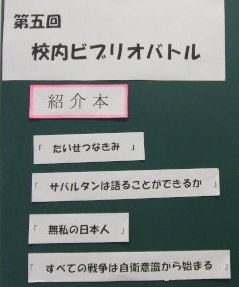 第五回
校内ビブリオバトル
紹介本
「 たいせつなきみ 」
「 サバルタンは語ることができるか 」
「 無私の日本人 」
「 すべての戦争は自衛意識から始まる 」